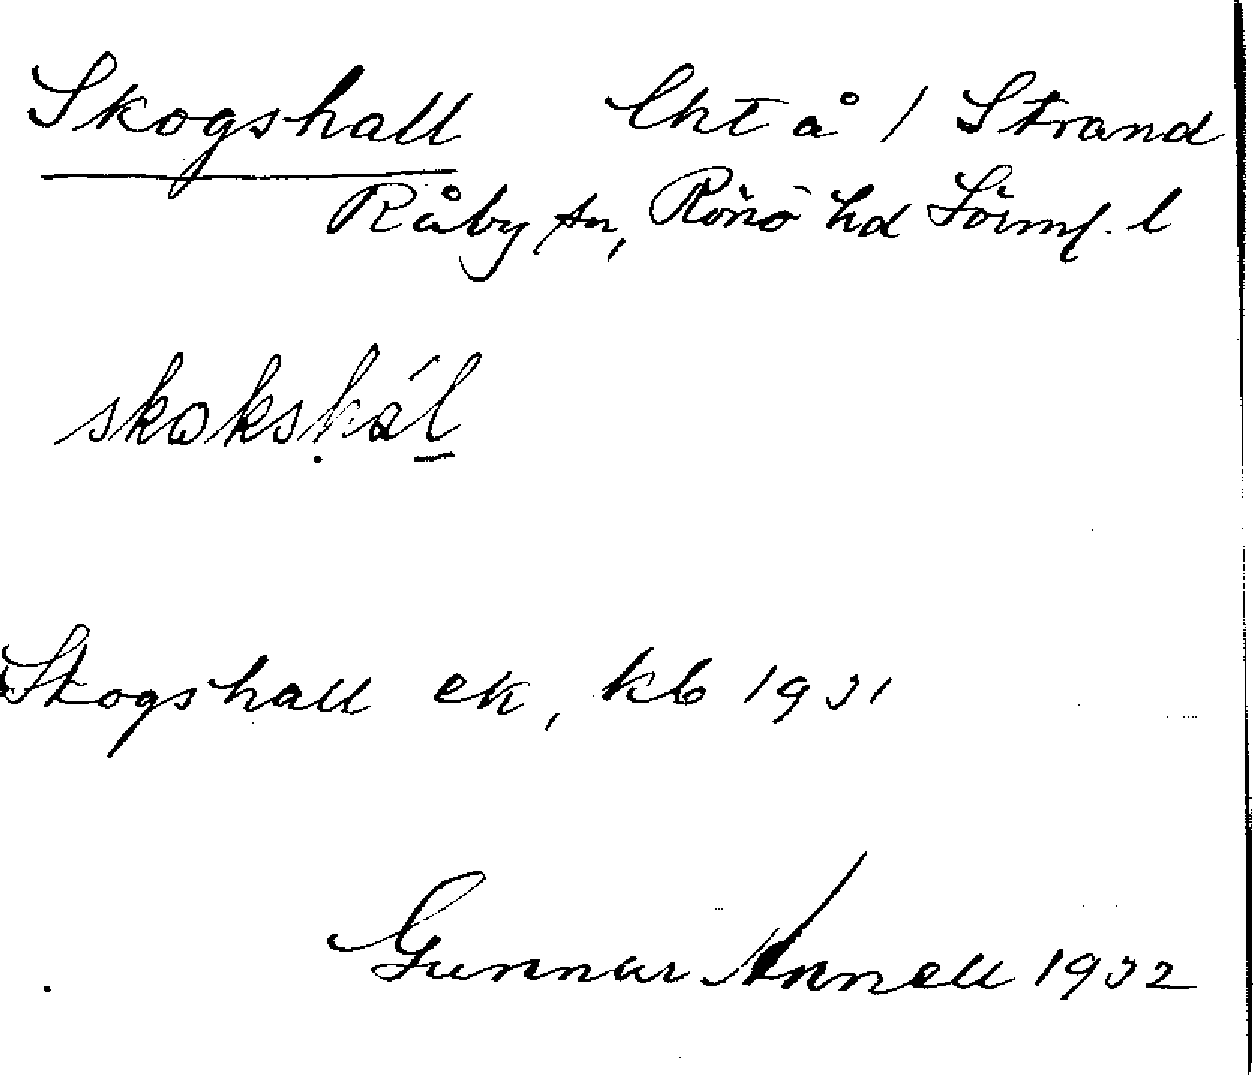 Skogshall lht å 1 Strand
Råby sn, Rönö hd Sörml. l
skokshál
Skogshall ek, kb 1931
Gunnar Annell 1932